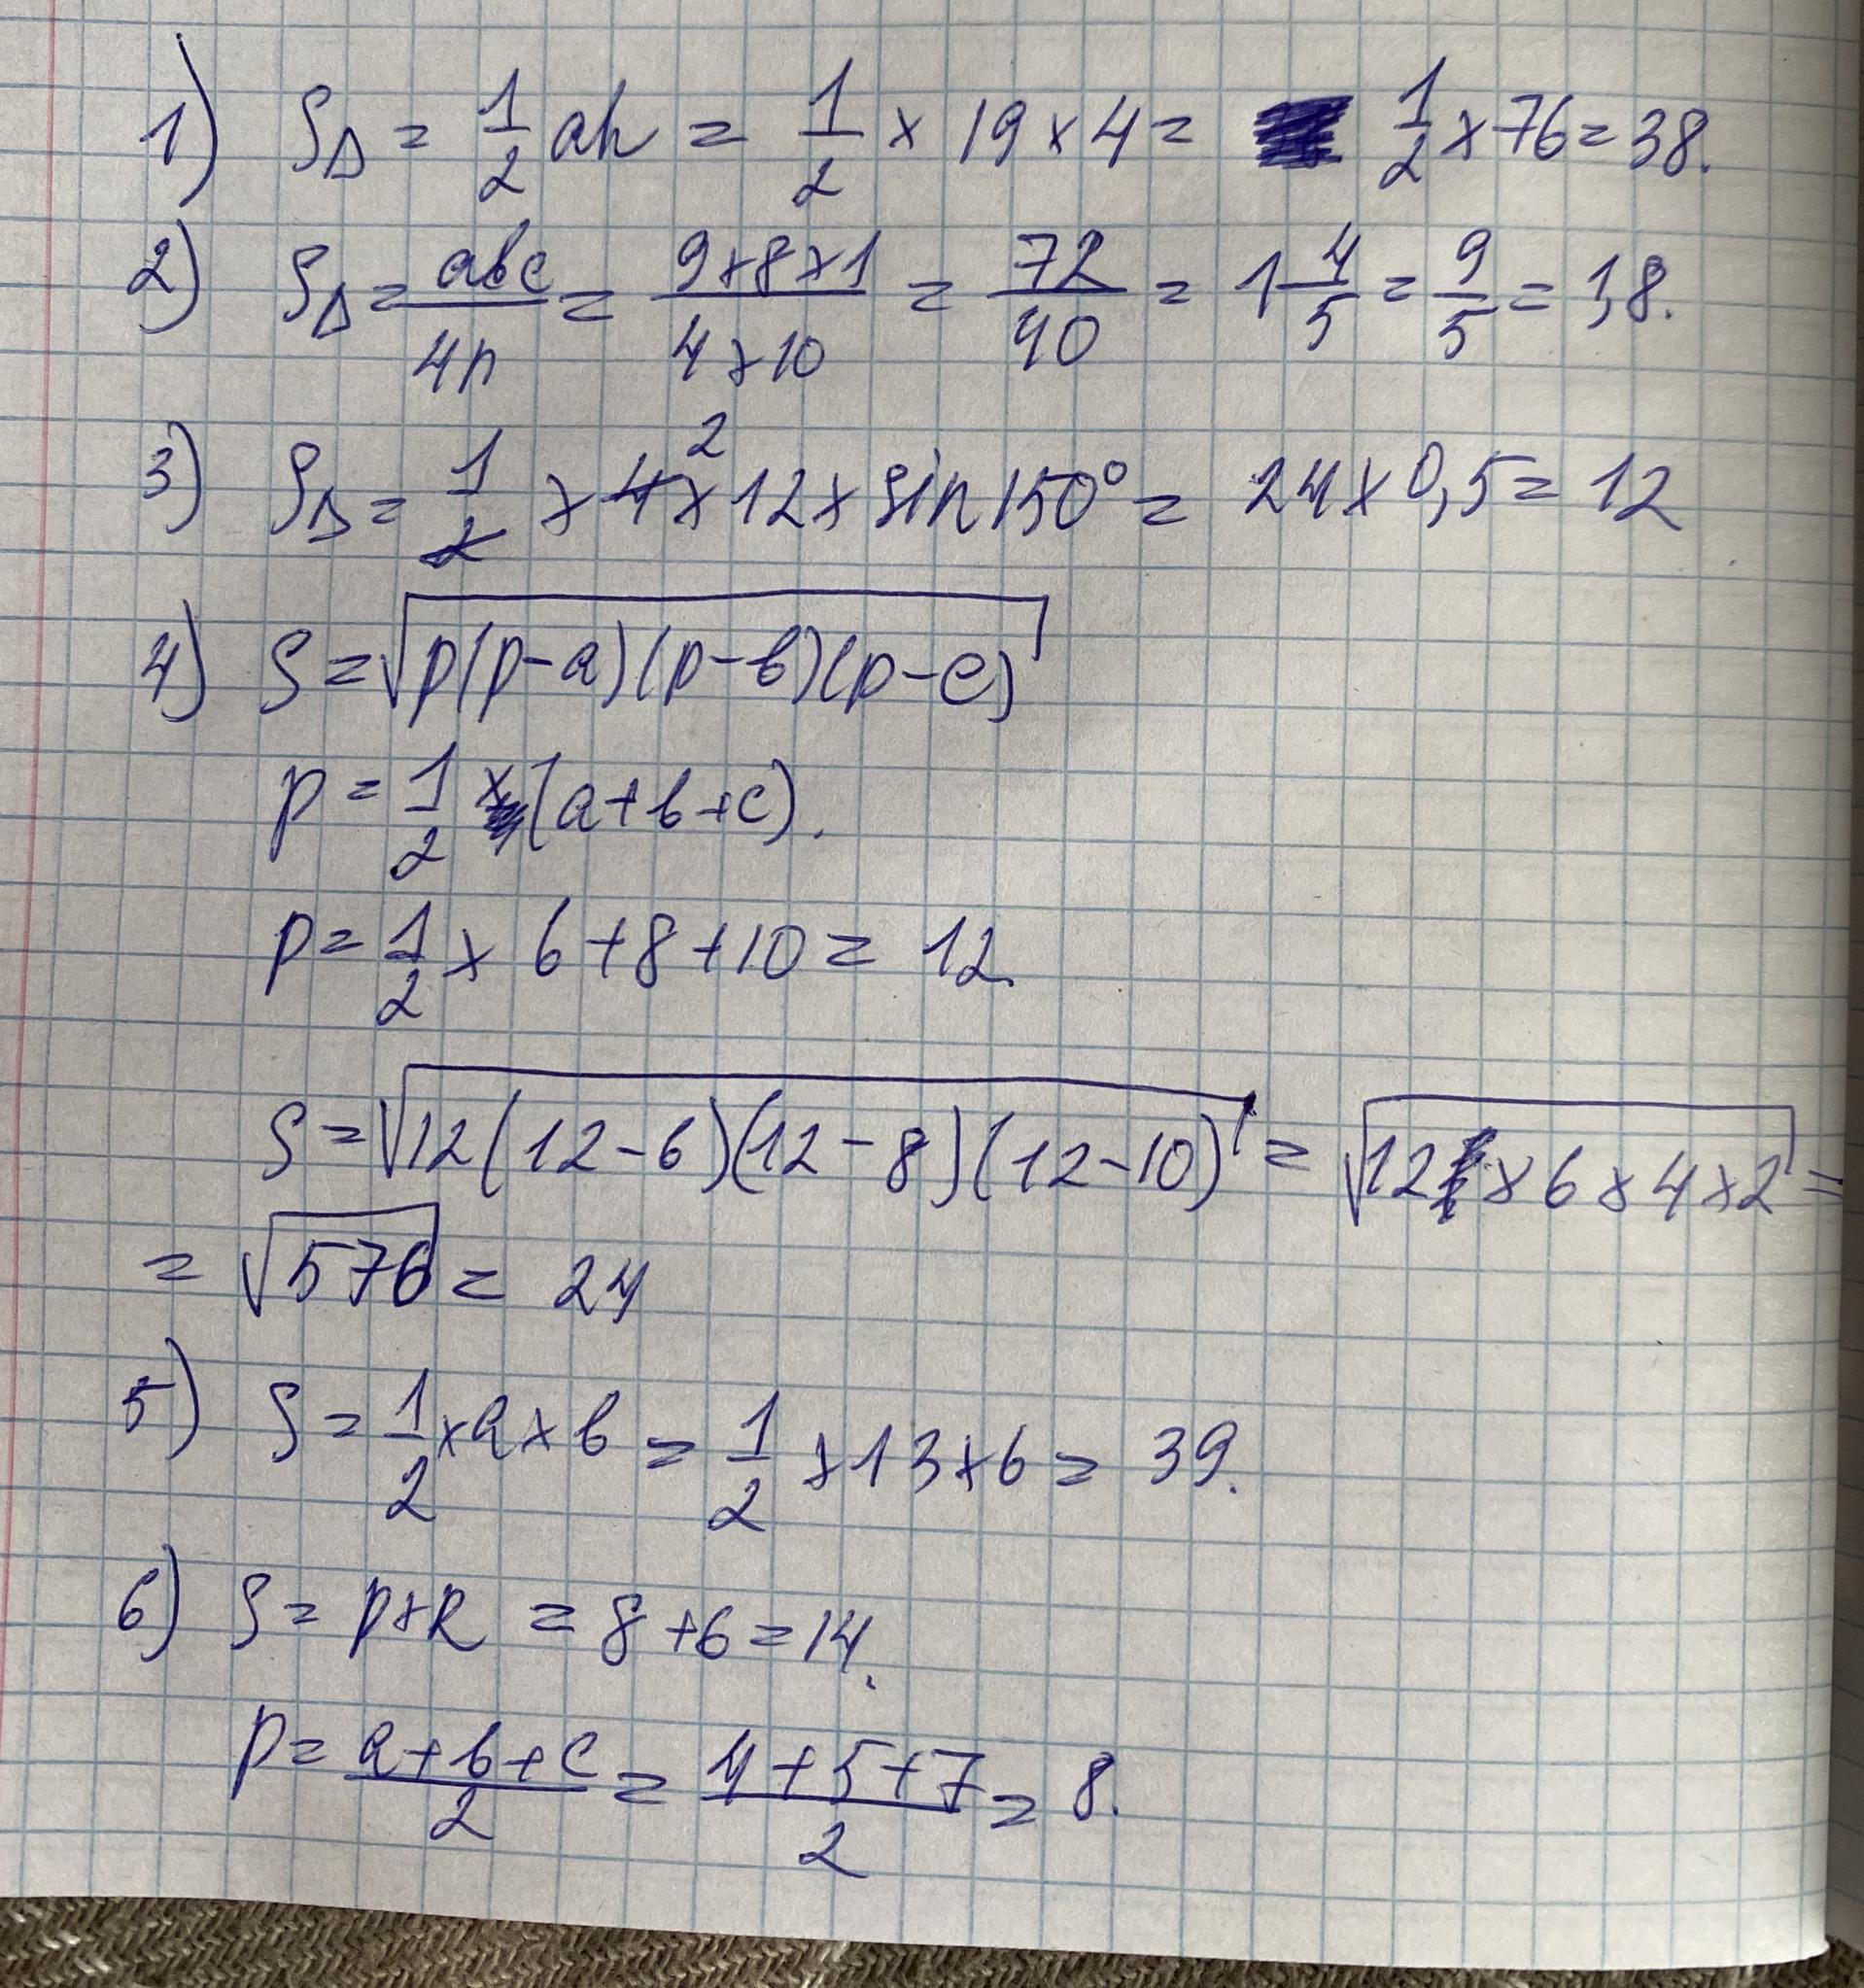 1) S△ = 1/2 ah = 1/2 × 19 × 4 = 1/2 × 76 = 38.
2) S△ = abc/4R = 9×8×1/4×10 = 72/40 = 1 4/5 = 9/5 = 1,8.
3) S△ = 1/2 × 4² × 12 × sin150° = 24 × 0,5 = 12
4) S = √p(p-a)(p-b)(p-c)
p = 1/2 × (a+b+c).
p = 1/2 × 6+8+10 = 12
S = √12(12-6)(12-8)(12-10) = √12 × 6 × 4 × 2 =
= √576 = 24
5) S = 1/2 × a × b = 1/2 × 13 × 6 = 39.
6) S = p+R = 8+6 = 14.
p = a+b+c/2 = 4+5+7/2 = 8.